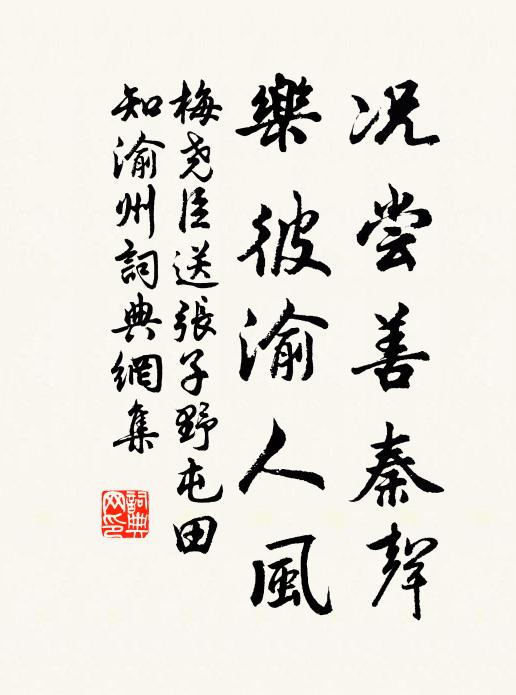 况尝善秦聲
樂彼渝人風
梅尧臣送張子野屯田
知渝州詞典網集
詞典网印